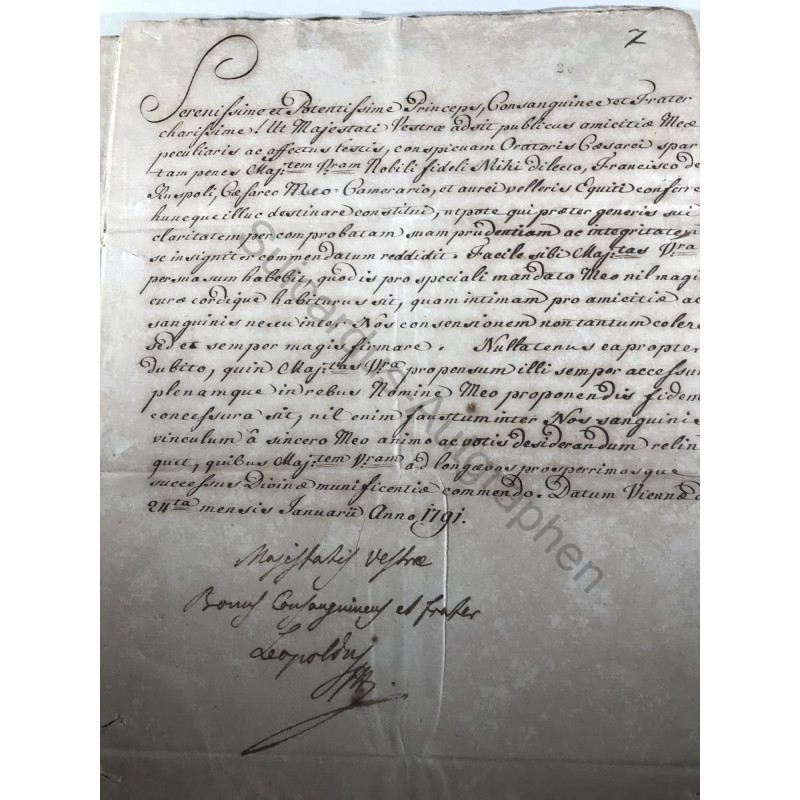 7
20
Serenissime et Potentissime Princeps, Consanguinee et Frater
charissime! Ut Majestati Vestræ adsit publicus amicitiæ Meæ
peculiaris ac affectus testis, conspicuam Oratoris Cæsarei spar
tam penes Maj:tem V:ram Nobili fideli Mihi dilecto, Francisco de
Ruspoli, Cæsareo Meo Camerario, et aurei velleris Equiti conferre
huncque illuc destinare constitui, utpote qui præter generis sui
claritatem per comprobatam suam prudentiam ac integritatem
se insigniter commendatum reddidit. Facile sibi Maj:tas V:ra
persuasum habebit, quod is pro speciali mandato Meo nil magis
curæ cordique habiturus sit, quam intimam pro amicitiæ ac
sanguinis nexu inter Nos consensionem non tantum colere
sed et semper magis firmare. Nullatenus ea propter
dubito, quin Maj:tas V:ra propensum illi semper accessum
plenamque in rebus Nomine Meo proponendis fidem
concessura sit, nil enim faustum inter Nos sanguinis
vinculum â sincero Meo animo ac votis desiderandum relin
quet, quibus Maj:tem V:ram ad longævos prosperrimosque
successus Divinæ munificentiæ commendo. Datum Viennæ d
24:ta mensis Januarii Anno 1791.
Majestatis Vestræ
Bonus Consanguineus et frater
Leopoldus
Autographen